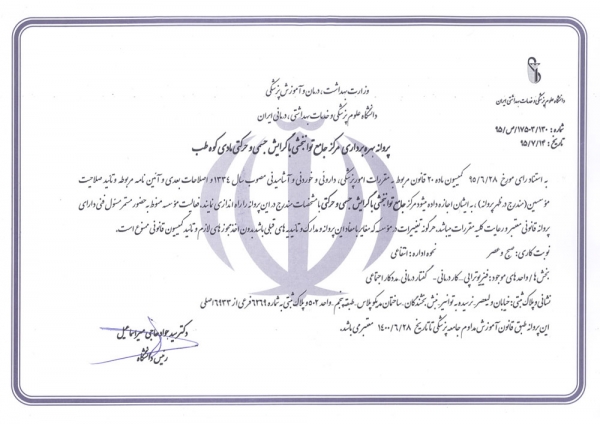 وزارت بهداشت، درمان و آموزش پزشکی
دانشگاه علوم پزشکی و خدمات بهداشتی، درمانی ایران
دانشگاه علوم پزشکی و خدمات بهداشتی ایران
شماره: ۹۵/ص/۱۷۵۰۳/۱۳۰
تاریخ: ۹۵/۷/۱۳
پروانه بهره برداری مرکز جامع توانبخشی با گرایش جسمی و حرکتی مادی کوه طب
به استناد رای مورخ ۹۵/۶/۲۸ کمیسیون ماده ۲۰ قانون مربوط به مقررات امور پزشکی، دارویی و خوردنی و آشامیدنی مصوب سال ۱۳۳۴ و اصلاحات بعدی و آئین نامه مربوطه و تائید صلاحیت
مؤسسین (مندرج در ظهر پروانه)، به ایشان اجازه داده میشود مرکز جامع توانبخشی با گرایش جسمی و حرکتی با مشخصات مندرج در این پروانه را راه اندازی نمایند. فعالیت مؤسسه منوط به حضور مستمر مسئول فنی دارای
پروانه قانونی معتبر و رعایت کلیه مقررات میباشد. هرگونه تغییرات در مؤسسه که مغایر با مفاد این پروانه و مدارک و تاییدیه های قبلی باشد بدون اخذ مجوز های لازم و تائید کمیسیون قانونی ممنوع است.
نوبت کاری: صبح و عصر نحوه اداره: انتفاعی
بخش ها / واحدهای موجود: فیزیوتراپی - کار درمانی - گفتار درمانی - مددکار اجتماعی
نشانی و پلاک ثبتی: خیابان ولیعصر، نرسیده به توانیر، نبش بخشندگان، ساختمان مدیکو پلاس، طبقه پنجم، واحد ۵۰۲ و پلاک ثبتی به شماره ۶۲۶۹ فرعی از ۱۶۹۳۳ اصلی
این پروانه طبق قانون آموزش مداوم جامعه پزشکی تا تاریخ ۱۴۰۰/۶/۲۸ معتبر می باشد.
دکتر سید جواد حاجی میر اسماعیل
رئیس دانشگاه